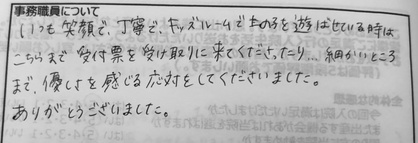 事務職員について
いつも笑顔で、丁寧で、キッズルームで子を遊ばせている時は
こちらまで受付票を受け取りに来てくださったり…細かいところ
まで、優しさを感じる応対をしてくださいました。
ありがとうございました。